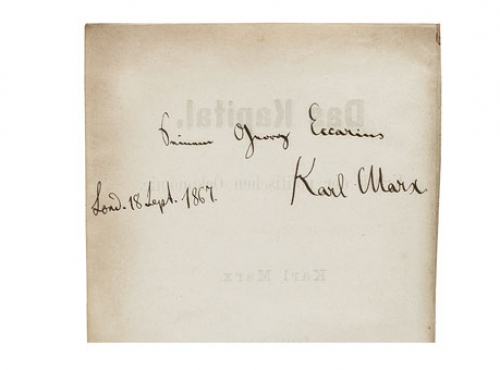 Das Kapital.
Seinem Georg Eccarius
Karl Marx
Lond. 18 Sept. 1867.
Karl Marx